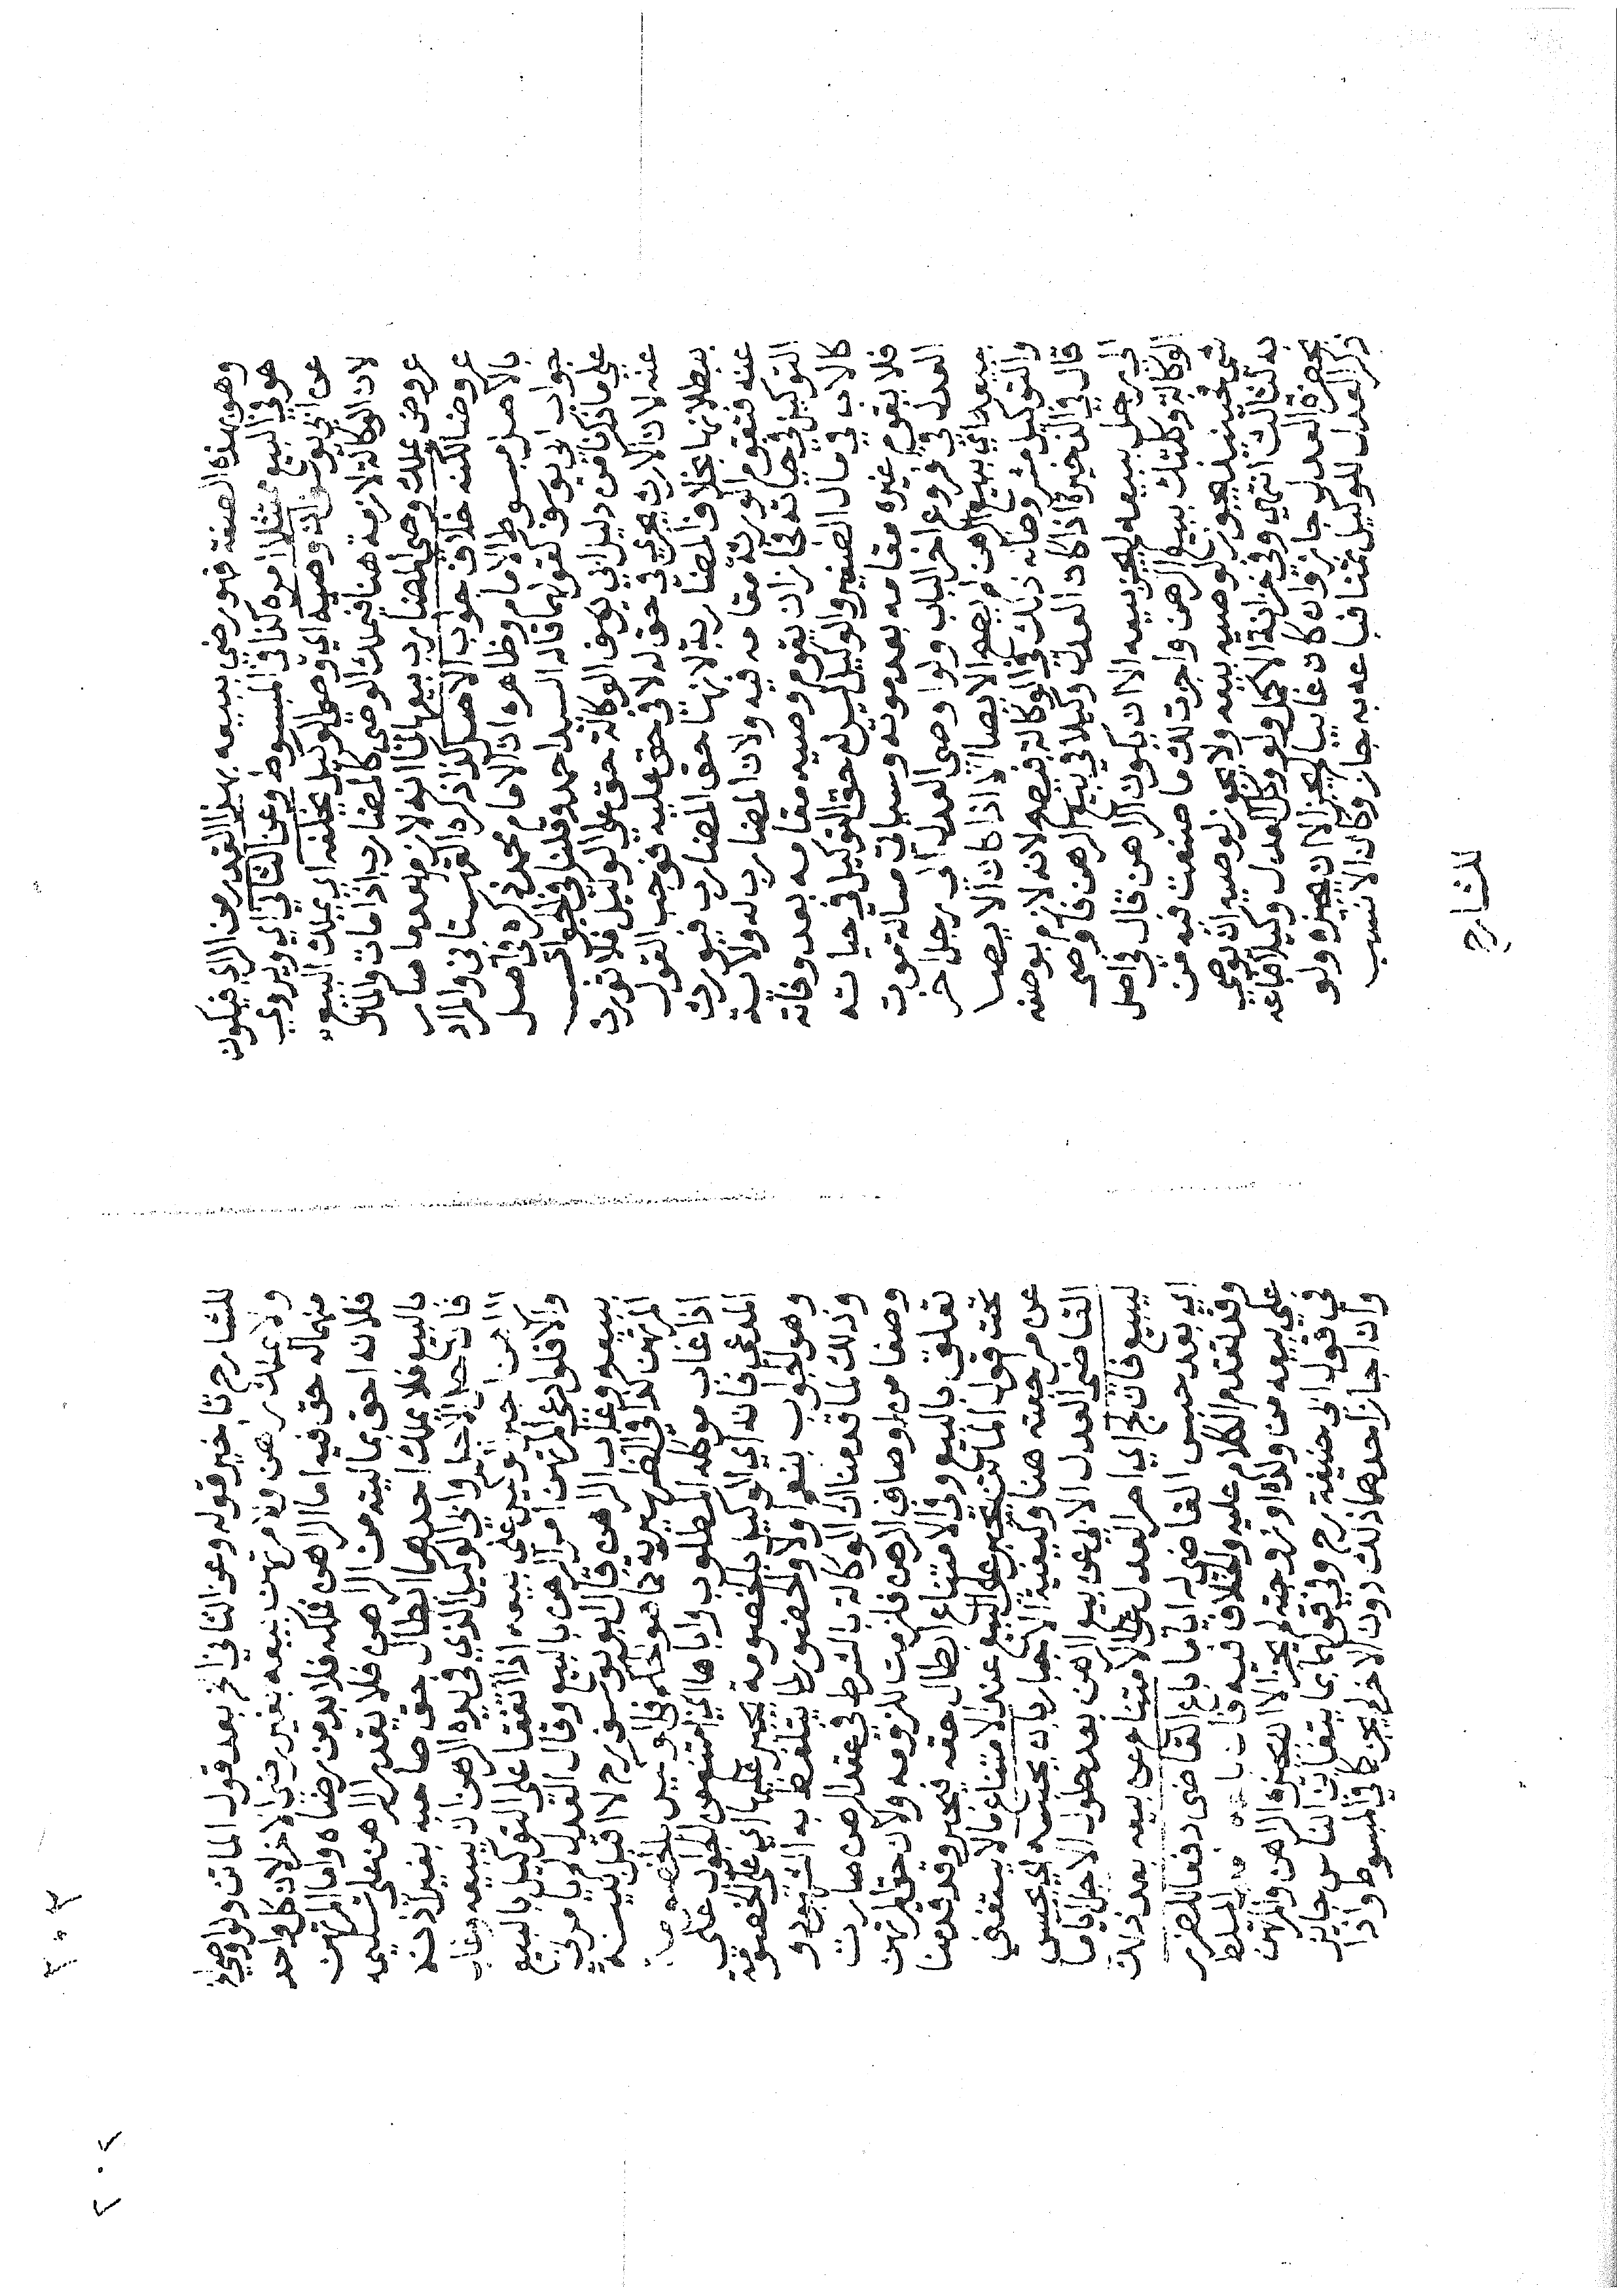 وهو بهذه الصفة فهو رضي ببيعه بهذا القدر من الراي فيكون
هو في البيع ممتثلا امره كذا في المبسوط وعن الثاني اي ويروي
عن ابي يوسف ان وصيه اي وصي الوكيل يخلفه اي يملك البيع
لان الوكالة لازمة هنا فيملك الوصي كالمضارب اذا مات والمال
عروض يملك وصي المضارب بيعها لما انه لازم بعد ما صار
عروضا لكنه خلاف جواب الاصل كذا ذكره القهستاني والمراد
بالاصل مبسوط الامام وظاهره ان الامام محمد ذكره في اصل
جواب ابي يوسف كقولهما قاله السيد احمد وقلنا في الجواب
علي ما ذكرنا من دليل ابي يوسف الوكالة حق علي الوكيل فلا تورث
عنه لان الارث يجري في حق له لا في حق عليه فوجب القول
ببطلانها بخلاف المضاربة لانها حق المضارب فيورث
عنه فتقوم الورثة مقامه فيه ولان المضارب له ولاية
التوكيل في حياته فجاز ان يقوم وصيه مقامه بعد وفاته
كالاب في مال الصغير والوكيل ليس له حق التوكيل في حياته
فلا يقوم غيره مقامه بعد موته وسياتي مسالة موت
العدل في فروع اخر الباب ولو اوصي العدل الي رجل اخر
ببيعه اي ببيع الرهن لم يصح الايصا الا اذا كان الايصا
والتوكيل مشروطا له ذلك في الوكالة فيصح لانه لازم بوصفه
قال في الذخيرة اذا كان العدل وكيلا في بيع الرهن فاوصي
الي رجل ببيعه لم يجز بيعه الا ان يكون الراهن قال في اصل
الوكالة وكلتك ببيع الرهن واجزت لك ما صنعت فيه من
شي فحينئذ يجوز لوصيه بيعه ولا يجوز لوصيه ان يوصي
به لثالث انتهي وفي خزانة الاكمل ولو وكل العدل وكيلا فباعه
بحضرة العدل جاز وان كان غايبا لم يجز الا ان يجيزه ولو
ذكر العدل للوكيل ثمنا فباعه به جاز وكان الانسب
للشارح
للشارح تاخير قوله وعن الثاني الخ بعد قول الماتن ولو اوصي الخ
ولا يملك راهن ولا مرتهن بيعه بغير رضي الاخر لان كل واحد
منهما له حق فيه اما الراهن فملكه فلا بد من رضاه واما المرتهن
فلانه احق بماليته من الراهن فلا يقدر الراهن علي تسليمه
بالبيع فلا يملك احدهما ابطال حق صاحبه بغير اذنه
فان حل الاجل وابي الوكيل الذي في يده الرهن ان يبيعه وغاب
اجبر الوكيل علي بيعه اذا اتفقا علي التوكيل بالبيع
والا فلو ادعي المرتهن امر الراهن بالبيع وقال العدل لم يامرني
ببيعه وغاب الراهن قال ابو يوسف رح لا اقبل بينة
المرتهن كذا في الظهيرية كما هو الحكم في الوكيل بالخصومة
اذا غاب موكله المطلوب واباها اي امتنع من الجواب علي
المدعي فانه اي الوكيل بالخصومة يجبر عليها اي علي الخصومة
وهو الجواب بنعم او لا والحضور لما يتلفظ به الشهود و
وذلك لما قدمنا ان الوكالة بالشرط في عقد الرهن صارت
وصفا من اوصاف الرهن فلزمت للزومه ولان حق المرتهن
تعلق بالبيع وفي الامتناع ابطال حقه فيجبر وقد قدمنا
تحت قول الماتن يجبر علي البيع عند الامتناع ما لا يستغني
عن مراجعته هنا وكيفية الاجبار بان يحبسه اي يحبس
القاضي العدل الابي عن بيع الرهن بعد حلول الاجل اياما
ليبيع فان لج اي اصر العدل علي الامتناع عن بيعه بعد ذلك
اي بعد حبس القاضي له اياما باع القاضي دفعا للضرر
وقد تقدم الكلام عليه والخلاف فيه فان باعه المسلط
علي بيعه من ولده او زوجته لم يجز الا ان يجيزه الراهن والمرتهن
في قول ابي حنيفة رح وفي قولهما بما يتغابن الناس جايز
وان اجاز احدهما ذلك دون الاخر لم يجز كما في المبسوط واذا